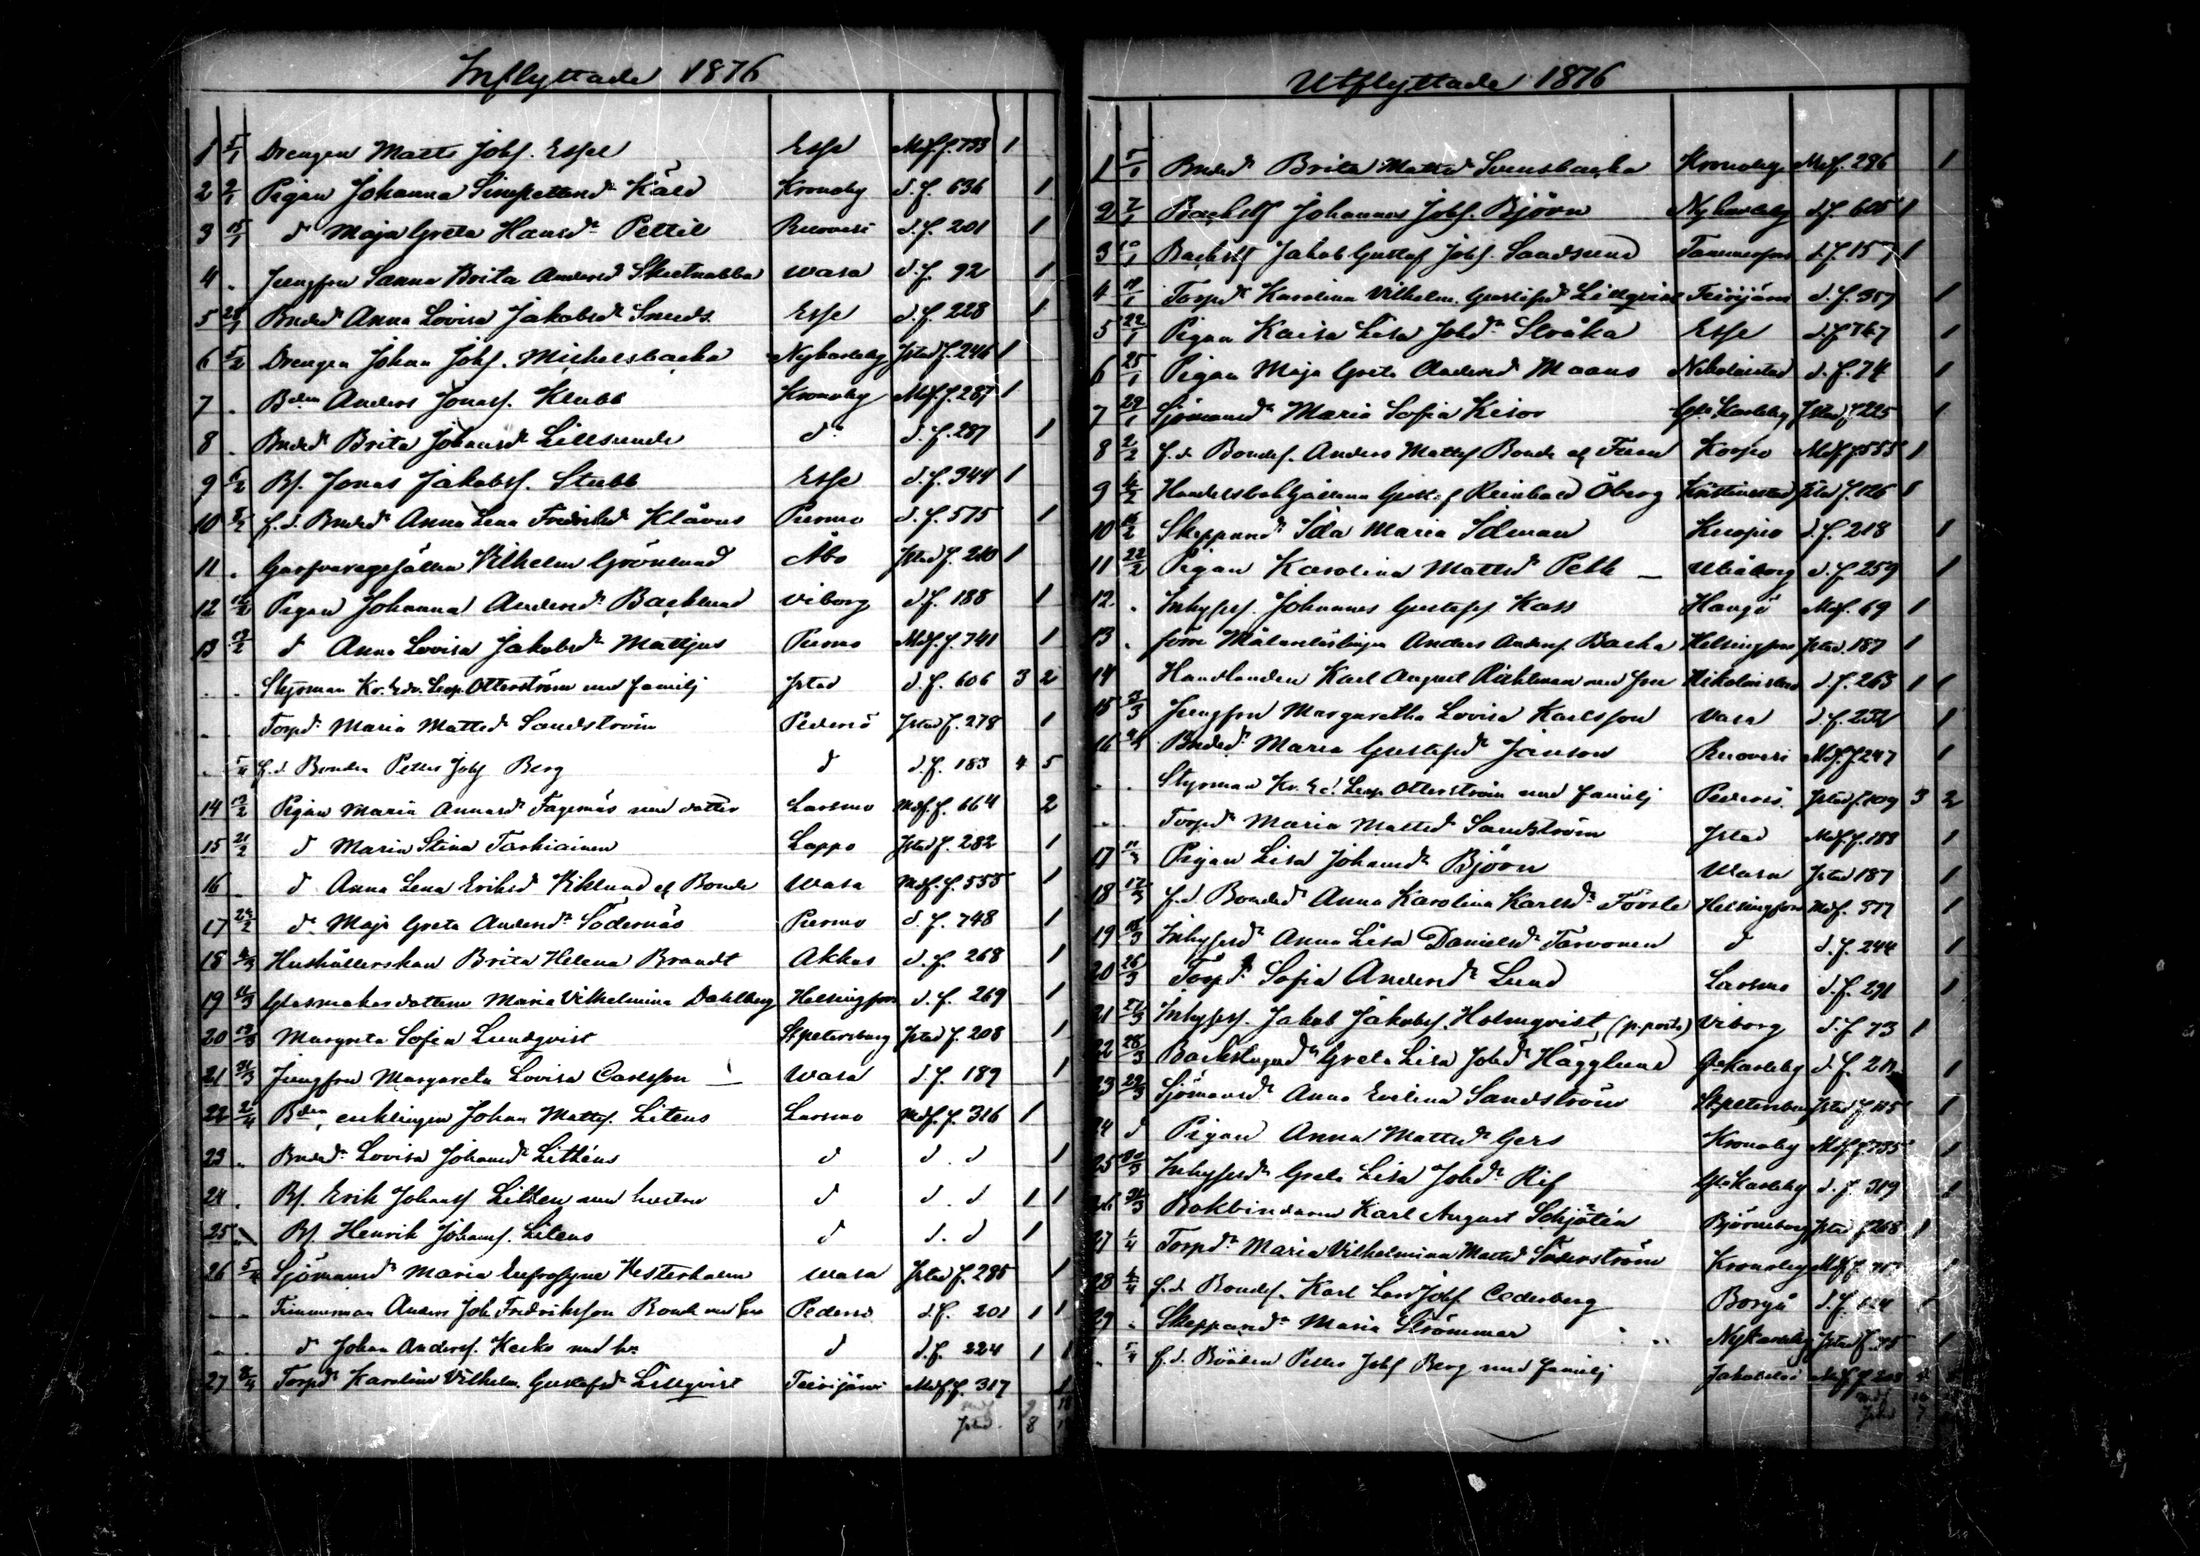 Inflyttade 1876
1 5/1 Drengen Matts Johs. Esse Esse Mdf. f. 733 1
2 7/1 Pigan Johanna Simonsd Käld Kronoby d. f. 636 1
3 15/1 d Maja Greta Hansd Pettil Ruovesi d. f. 201 1
4 . Jungfru Sanna Brita Andersd Skutnabba Wasa d. f. 92 1
5 28/1 Bnded Anna Lovisa Jakobsd Sneds Esse d. f. 228 1
6 5/2 Drengen Johan Johs. Michelsbacka Nykarleby Jstad f. 246 1
7 . Bdm Anders Jonass. Klubb Kronoby Mdf. f. 287 1
8 . Bnded Brita Johansd Lillsunde d d. f. 287 1
9 6/2 Bs. Jonas Jakobss. Stubb Esse d. f. 344 1
10 f. d. Bnded Anna Lena Fredriksd Klåvus Purmo d. f. 575 1
11 . Garfvaregesällen Vilhelm Grönlund Åbo Jstad f. 210 1
12 12/2 Pigan Johanna Andersd Backlund Viborg d. f. 188 1
13 17/2 d Anna Lovisa Jakobsd Mattjus Purmo Mdf. f. 741 1
. . Styrman Kr. Edv. Leop. Otterström med familj Jstad d. f. 606 3 2
. . Torpd Maria Mattsd Sandström Pedersö Jstad f. 278 1
. 5/4 f. d Bonden Petter Johs Berg d d. f. 183 4 5
14 19/2 Pigan Maria Annasd Fagernäs med dotter Larsmo Mdf. f. 664 2
15 21/2 d Maria Stina Tarkiainen Lappo Jstad f. 282 1
16 . d Anna Lena Eriksd Viklund af Bonde Wasa Mdf. f. 555 1
17 24/2 d Maja Greta Andersd Södernäs Purmo d. f. 748 1
18 Hushållerskan Brita Helena Brandt Akkas d. f. 268 1
19 11/3 Glasmakardottern Maria Vilhelmina Dahlberg Helsingfors d. f. 269 1
20 Margreta Sofia Lundqvist St petersburg Jstad f. 208 1
21 31/3 Jungfru Margareta Lovisa Carlsson Wasa d. f. 189 1
22 2/4 Bden enklingen Johan Mattss. Litens Larsmo Mdf. f. 316 1
23 . Bnded Lovisa Johansd Litléns d d. d 1
24 . Bs. Erik Johanss Litlen med hustru d d. d 1 1
25 . Bs Henrik Johanss. Litens d d. d 1
26 5/4 Sjömansd Maria Eufrosyne Westerholm Wasa Jstad f. 285 1
. . Timmerman Anders Joh Fredriksson Bonde med hu Pedersö d. f. 201 1 1
. . d Johan Anderss. Kecko med hu d d. f. 224 1 1
27 Torpd Karolina Vilhelm. Gustafsd Lillqvist Teirijärvi Mdf. f. 317 1
Mdf 9 18
Jstad 8
Utflyttade 1876
1 5/1 Bnded Brita Mattsd Svensbacka Kronoby Mdf. 286 1
2 7/1 Backstfs Johannes Johs. Björn Nykarleby d. f. 605 1
3 10/1 Backstfs Jakob Gustaf Johs. Sandsund Tammerfors d. f. 157 1
4 11/1 Torpd Karolina Vilhelm. Gustafsd Lillqvist Teirijärvi d. f. 357 1
5 22/1 Pigan Kaisa Lisa Johsd Stråka Esse d. f 767 1
6 25/1 Pigan Maja Greta Andersd Maans Nikolaistad d. f. 74 1
7 29/1 Sjömansd Maria Sofia Keisor Gla Karleby Jstad f 225 1
8 2/2 f. d. Bondes. Anders Mattss Bonde af Furu Korpo Mdf. f 553 1
9 4/2 Handelsbokhållaren Gust. f Reinhold Öberg Kristinestad Jstad f. 126 1
10 15/2 Skeppared Ida Maria Idman Kuopio d. f. 218 1
11 22/2 Pigan Karolina Mattsd Peth Uleåborg d. f 259 1
12 . Inhyses. Johannes Gustafss Kass Hangö Mdf. 69 1
13 . förre Målarelärlingen Anders Anderss. Backa Helsingfors Jstad. 187 1
14 Handlanden Karl August Rickman med fru Nikolaistad d. f. 263 1 1
15 3/3 Jungfru Margaretha Lovisa Karlsson Vasa d. f. 232 1
16 Bnded Maria Gustafsd Jänson Ruovesi Mdf. f 247 1
. . Styrman Kr. Ed. Leop. Otterström med familj Pedersö. Jstad f. 109 3 2
. . Torpd Maria Mattsd Sandström Jstad Mdf. f. 188 1
17 11/3 Pigan Lisa Johansd Björn Wasa Jstad 187 1
18 17/3 f. d. Bonded Anna Karolina Karlsd Förste Helsingfors Mdf. 377 1
19 18/3 Inhysesd Anna Lisa Danielsd Tarvonen d d. f. 244 1
20 26/3 Torpd Sofia Andersd Lund Larsmo d. f. 291 1
21 27/3 Inhyses. Jakob Jakobss. Holmqvist (p. posto) Viborg d. f 73 1
22 28/3 Backstugud Greta Lisa Johsd Hägglund Gla Karleby d. f. 212 1
23 29/3 Sjömansd Anna Evelina Sandström St petersburg Jstad f. 115 1
24 d Pigan Anna Mattsd Gers Kronoby Mdf. f. 735 1
25 30/3 Inhysesd Greta Lisa Johsd Rif Gla Karleby d. f. 319 1
26 31/3 Bokbindaren Karl August Schjötén Björneborg Jstad f 268 1
27 1/4 Torpd Maria Vilhelmina Mattsd Söderström Kronoby Mdf. f. 1
28 4/4 f. d. Bondes. Karl Lars Johs Cederberg Borgå d. f. 124 1
29 . Skeppared Maria Strömmer Nykarleby Jstad f. 35 1
. 5/4 f. d. Bonden Petter Johs Berg med familj Jakobstad Mdf. f. 208 4 5
Mdf
Jstad 7